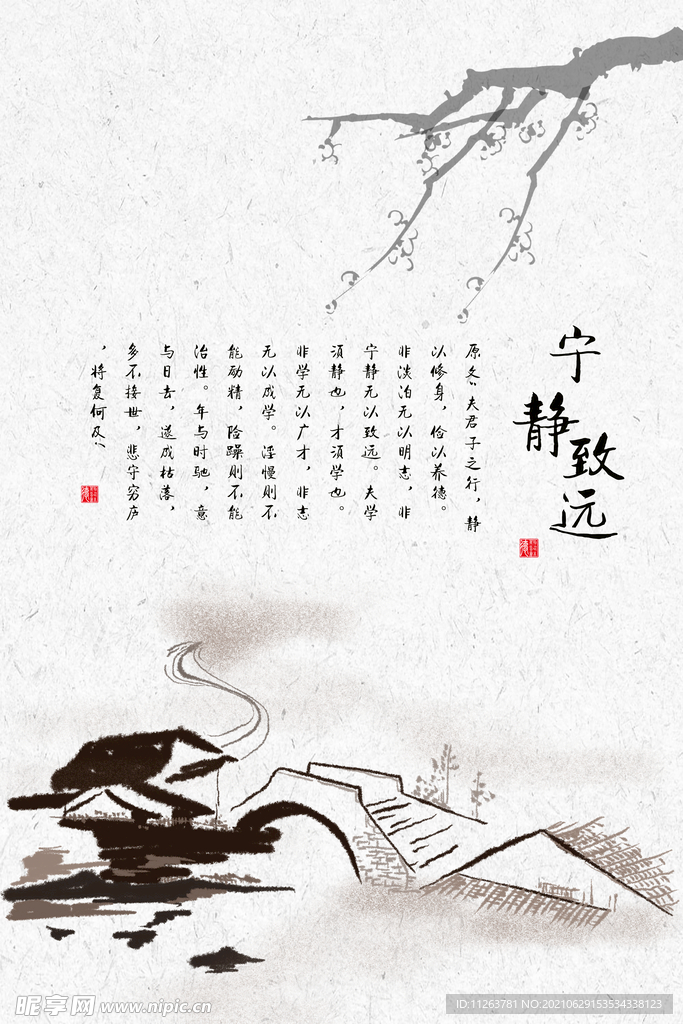 宁静致远
原文：“夫君子之行，静
以修身，俭以养德。
非淡泊无以明志，非
宁静无以致远。夫学
须静也，才须学也。
非学无以广才，非志
无以成学。淫慢则不
能励精，险躁则不能
治性。年与时驰，意
与日去，遂成枯落，
多不接世，悲守穷庐
，将复何及！
昵享网 www.nipic.cn
ID:11263781 NO:20210629153534338123